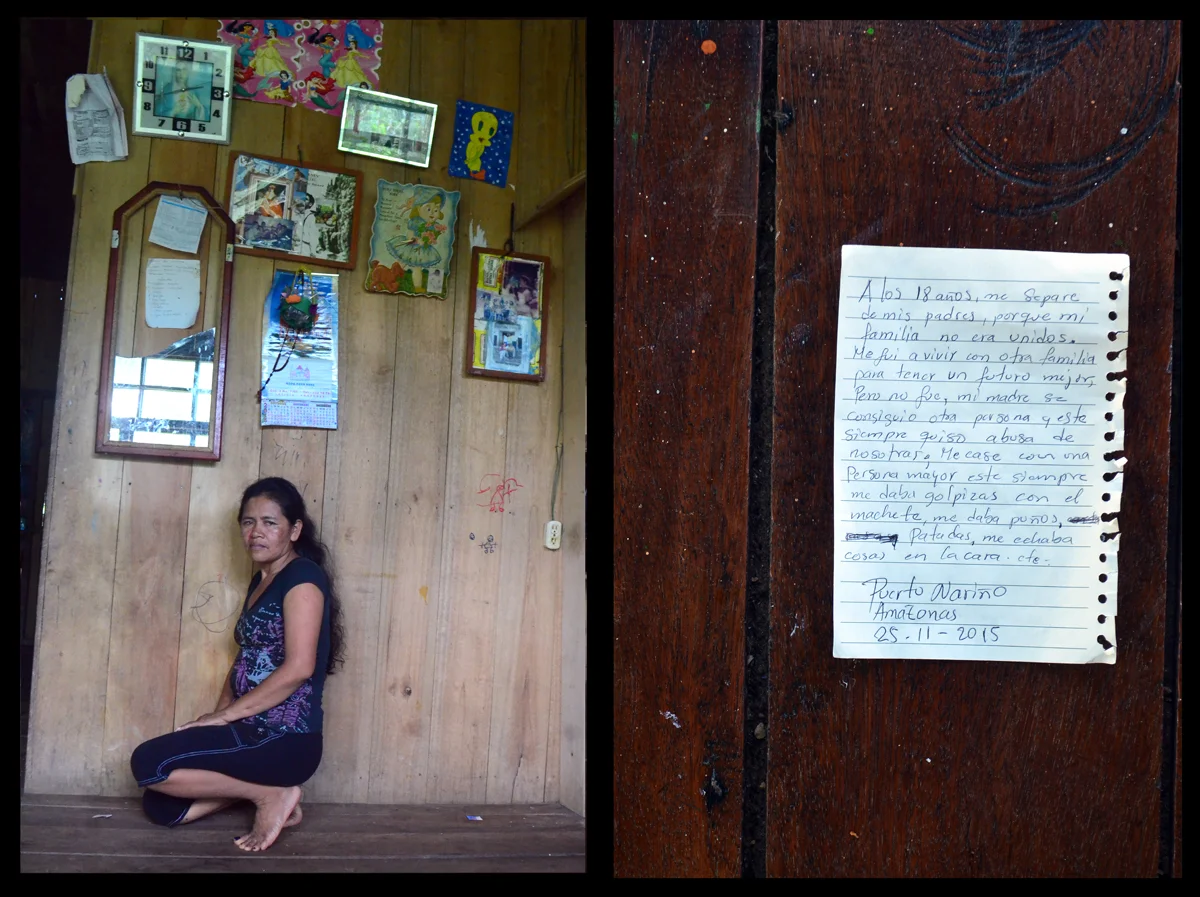 11 12 1
10 2
9 3
8 4
7 6 5
A los 18 años, me separe
de mis padres, porque mi
familia no era unidos.
Me fui a vivir con otra familia
para tener un futuro mejor,
Pero no fue, mi madre se
consiguio otra persona y este
siempre quiso abusa de
nosotras. Me case con una
Persona mayor este siempre
me daba golpizas con el
machete, me daba puños,
Patadas, me echaba
cosas en la cara. etc.
Puerto Nariño
Amazonas
25-11-2015